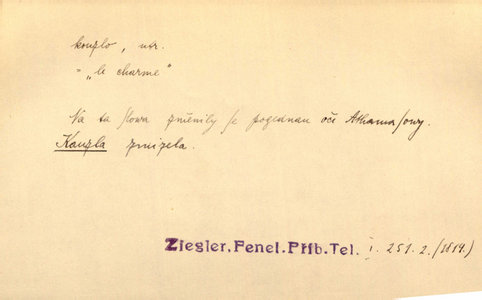 kouzlo, ntr.
= „le charme"
Na ta slowa změnily se pogednau oči Athamasowy.
Kauzla zmizela.
Ziegler, Fenel. Příb. Tel. I. 251. 2. (1814.)